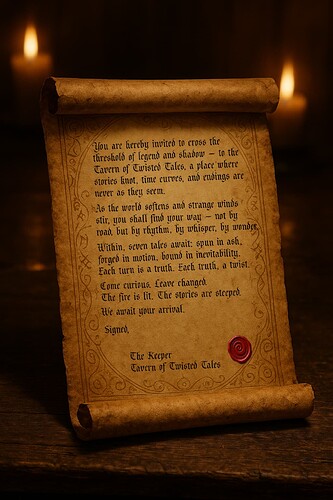 You are hereby invited to cross the
threshold of legend and shadow — to the
Tavern of Twisted Tales, a place where
stories knot, time curves, and endings are
never as they seem.
As the world softens and strange winds
stir, you shall find your way — not by
road, but by rhythm, by whisper, by wonder.
Within, seven tales await: spun in ash,
forged in motion, bound in inevitability.
Each turn is a truth. Each truth, a twist.
Come curious. Leave changed.
The fire is lit. The stories are steeped.
We await your arrival.
Signed,
The Keeper
Tavern of Twisted Tales